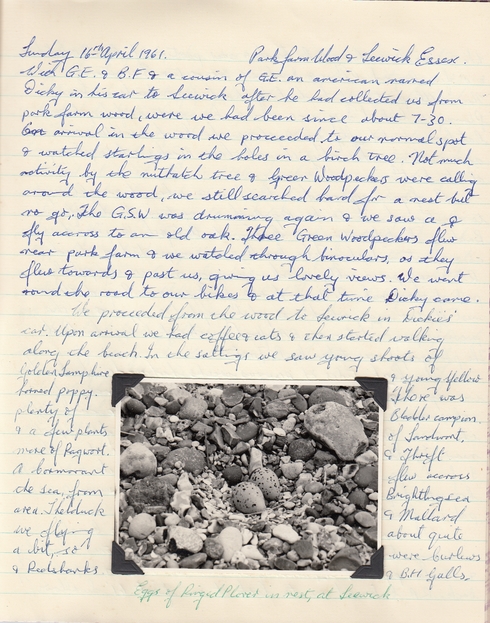 Sunday 16th April 1961. Park farm Wood & Leewick Essex.
With G.E. & B.F & a cousin of G.E. an american named
Dicky in his car to Leewick after he had collected us from
park farm wood, were we had been since about 7-30.
On arrival in the wood we proceeded to our normal spot
& watched starlings in the holes in a birch tree. Not much
activity by the nuthatch tree & Green Woodpeckers were calling
around the wood, we still searched hard for a nest but
no go, The G.S.W was drumming again & we saw a
fly accross to an old oak. Three Green Woodpeckers flew
near park farm & we watched through binoculars, as they
flew towards & past us, giving us lovely views. We went
round the road to our bikes & at that time Dicky came.
We proceeded from the wood to Leewick in Dickies'
car. Upon arrival we had coffee & eats & then started walking
along the beach. In the saltings we saw young shoots of
Golden Samphire & young yellow
horned poppy. There was
plenty of Bladder campion
& a few plants of Sandwort,
more of Ragwort. & Thrift
A Cormorant flew accross
the sea, from Brightlingsea
area. The duck & Mallard
we flying about quite
a bit, so were curlews
& Redshanks & B.H Gulls.
Eggs of Ringed Plover in nest, at Leewick